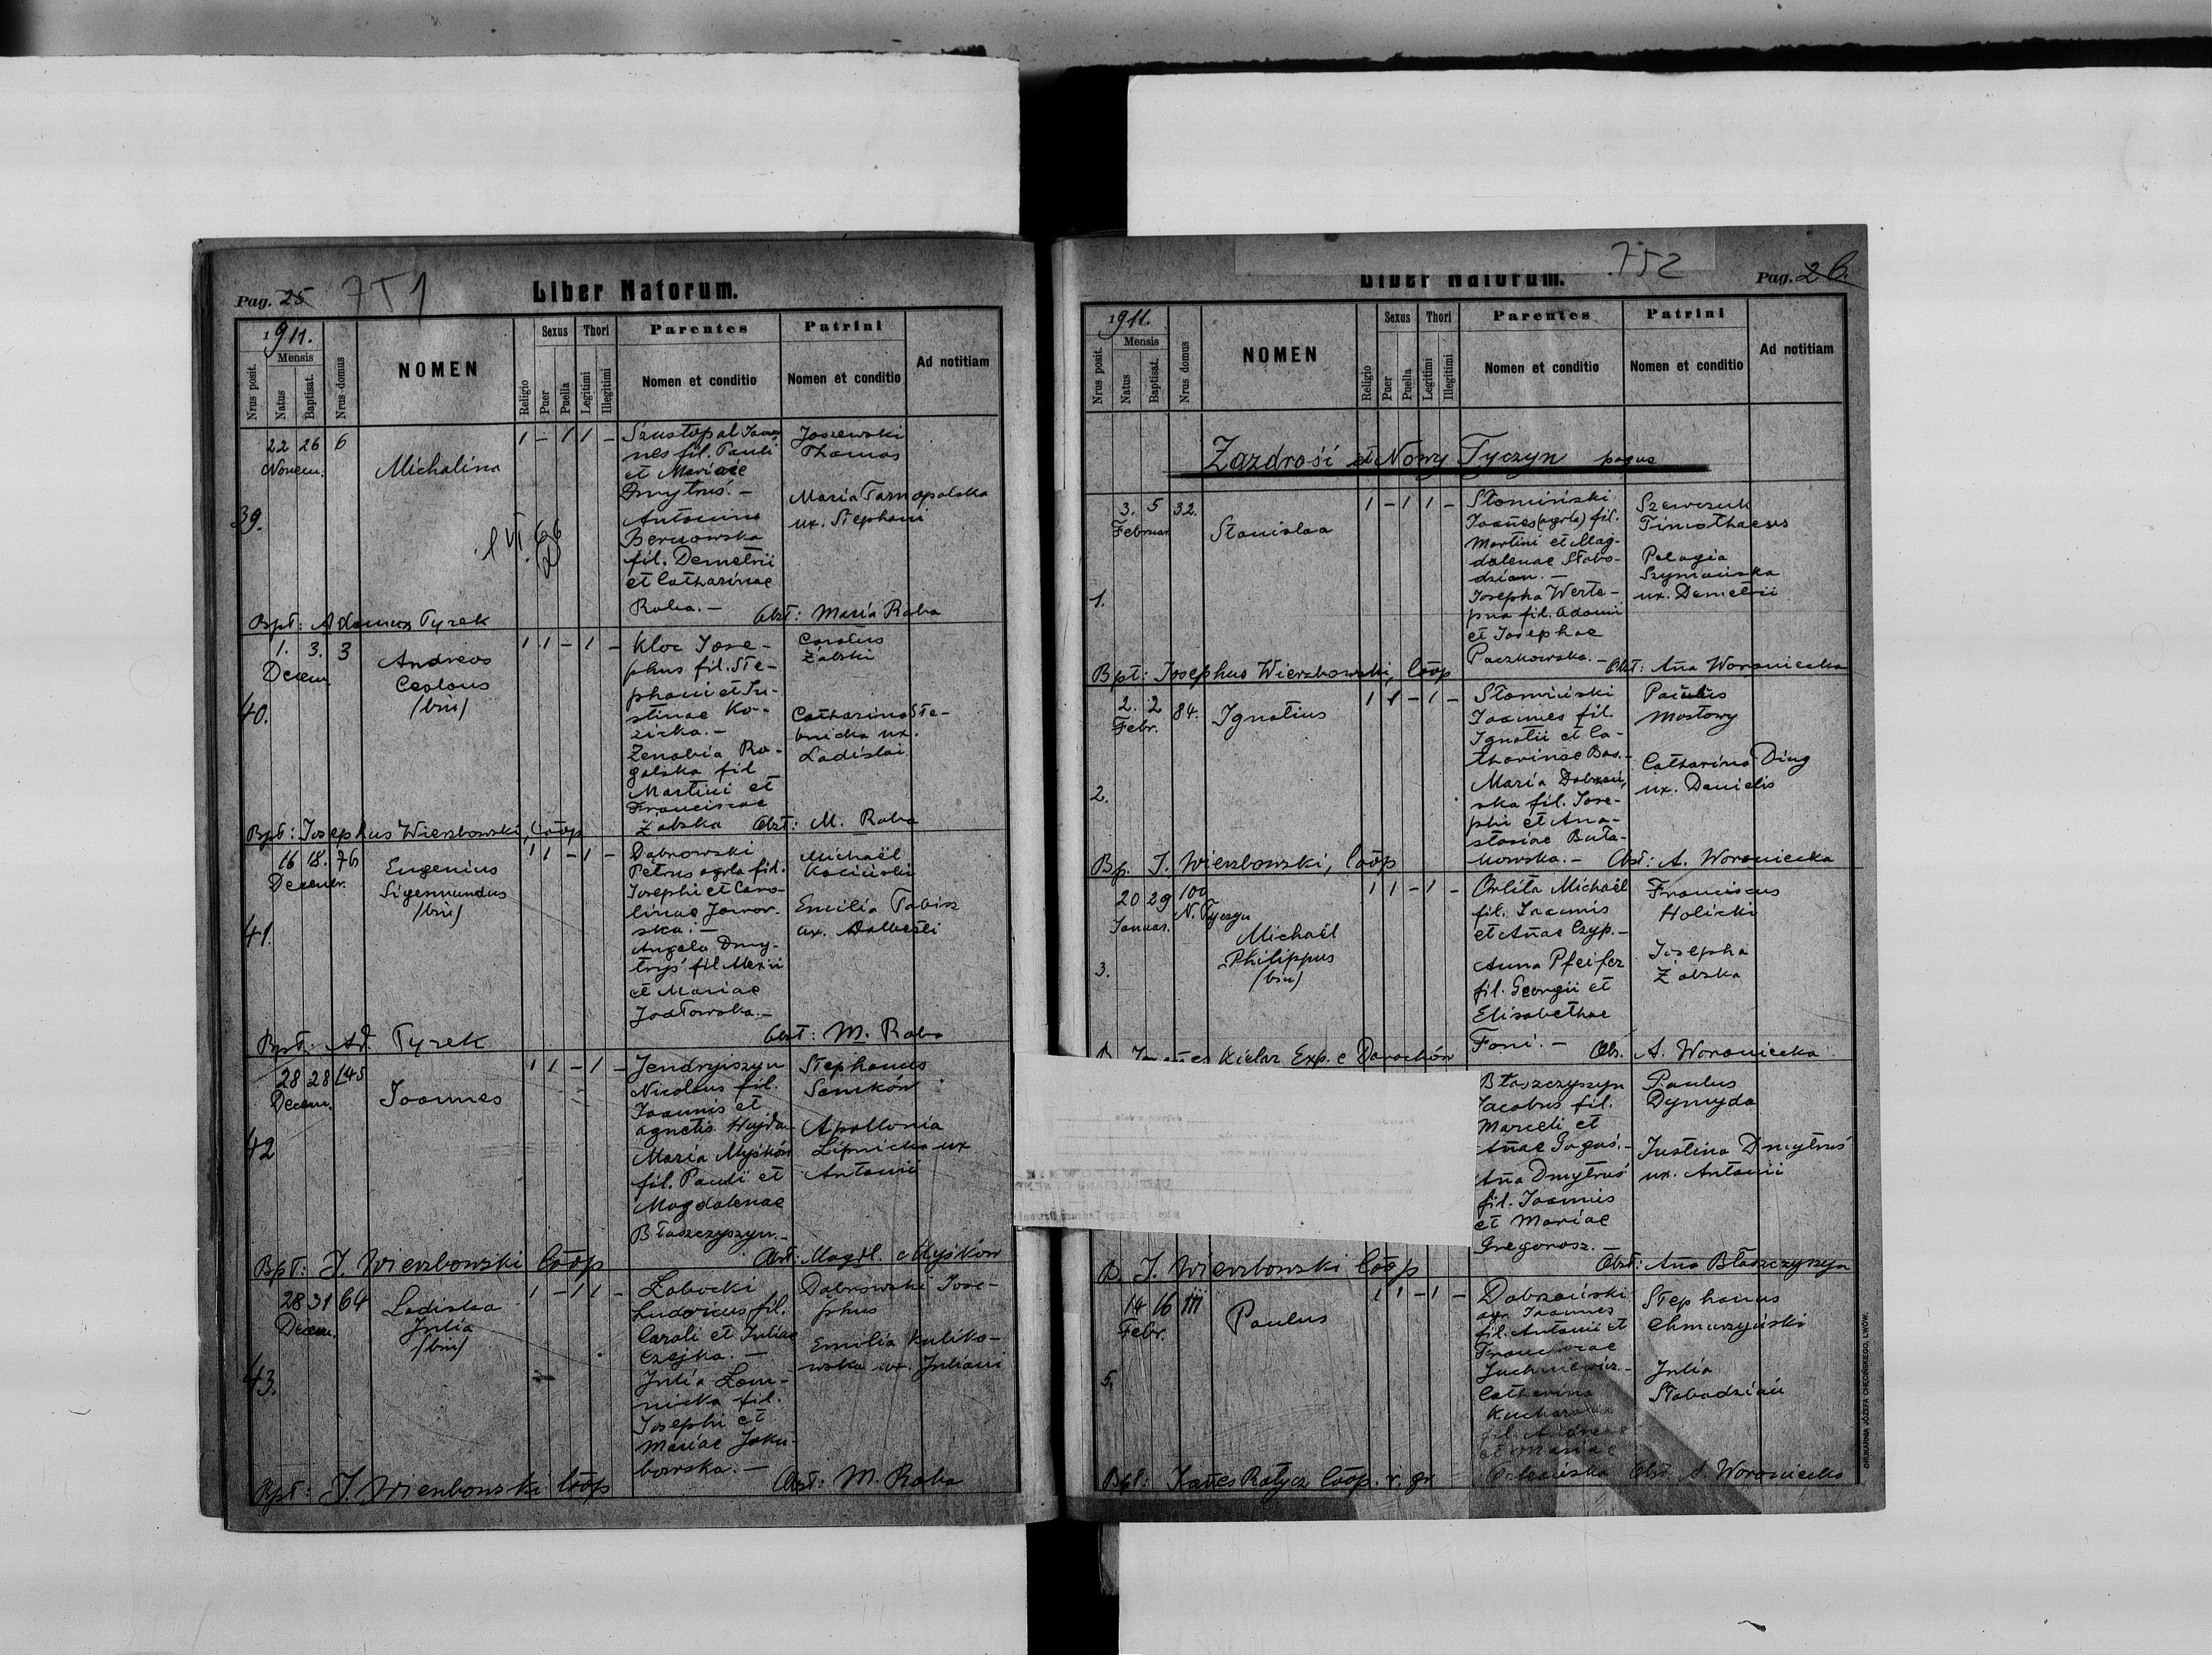 Pag. 25 751
Liber Natorum.
1911.
Mensis
Nrus posit.
Natus
Baptisat.
Nrus domus
NOMEN
Religio
Sexus
Puer
Puella
Thori
Legitimi
Illegitimi
Parentes
Nomen et conditio
Patrini
Nomen et conditio
Ad notitiam
39.
22 26 6
Novem.
Michalina
1 - 1 1 -
Szustopal Joan
nes fil. Pauli
et Mariae
Dmytruś. -
Antonina
Bernowska
fil. Demetrii
et Catharinae
Raba. -
Joszewski
Thomas
Maria Tarnopolska
ux. Stephani
Bpt: Adamus Tyrek
Obst: Maria Raba
40.
1. 3. 3
Decem.
Andreas
Ceslaus
/bin/
1 1 - 1 -
Kloc Jose-
phus fil. Ste-
phani et Ju-
stinae Ko-
zicka. -
Zenobia Ro-
galska fil
Martini et
Franciscae
Żabska
Carolus
Żabski
Catharina Ste-
bnicka ux.
Ladislai
Bpt: Josephus Wierzbowski, Coop
Obst: M. Raba
41.
16 18. 76
Decembr.
Eugenius
Sigesmundus
/bin/
1 1 - 1 -
Dąbrowski
Petrus agrla fil.
Josephi et Caro-
linae Jawor-
ska. -
Angela Dmy-
tryś fil. Alexii
et Mariae
Jodłowska. -
Michaël
Kociński
Emilia Tabisz
ux. Adalberti
Bpt: Ad. Tyrek
Obst: M. Raba
42
28 28 145
Decem.
Joannes
1 1 - 1 -
Jendryiszyn
Nicolaus fil.
Joannis et
Agnetis Wujda
Maria Myśków
fil. Pauli et
Magdalenae
Błaszczyszyn. -
Stephanus
Semków
Apollonia
Lipnicka ux
Antonii
Bpt: J. Wierzbowski Coop
Obst: Magdl. Myśków
43.
28 31 64
Decem.
Ladislaa
Julia
/bin/
1 - 1 1 -
Zabocki
Ludovicus fil.
Caroli et Juliae
Czejka. -
Julia Łom-
nicka fil.
Josephi et
Mariae Jaku-
bowska. -
Dąbrowski Jose-
phus
Emilia Kuliko-
wska ux. Juliani
Bpt: J. Wierzbowski Coop
Obst: M. Raba
752
Liber Natorum.
Pag. 26.
1911.
Mensis
Nrus posit.
Natus
Baptisat.
Nrus domus
NOMEN
Religio
Sexus
Puer
Puella
Thori
Legitimi
Illegitimi
Parentes
Nomen et conditio
Patrini
Nomen et conditio
Ad notitiam
Zazdrość et Nowy Tyczyn pagus
1.
3. 5 32.
Februar.
Stanislaa
1 - 1 1 -
Słomiński
Joañes (agrla) fil.
Martini et Mag-
dalenae Słobo-
dzian. -
Josepha Werte-
pna fil. Adami
et Josephae
Paczkowska. -
Szewczuk
Timothaeus
Pelagia
Szymańska
ux. Demetrii
Bpt: Josephus Wierzbowski, Coop
Obst: Aña Woroniecka
2.
2. 2 84.
Febr.
Ignatius
1 1 - 1 -
Słomiński
Joannes fil.
Ignatii et Ca-
tharinae Bas. -
Maria Dobrzań-
ska fil. Jose-
phi et Ana-
stasiae Buła-
kowska. -
Paulus
Mostowy
Catharina Ding
ux. Danielis
Bp. J. Wierzbowski, Coop
Obst: A. Woroniecka
3.
20 29 100
Januar.
N. Tyczyn
Michaël
Philippus
/bin/
1 1 - 1 -
Orlita Michaël
fil. Joannis
et Añae Czyp. -
Anna Pfeifer
fil. Georgii et
Elisabethae
Foni. -
Franciscus
Holicki
Josepha
Żabska
B. Joañes Kielar Exp. c Darachów
Ob. A. Woroniecka
Błaszczyszyn
Jacobus fil.
Marceli et
Añae Goguś. -
Aña Dmytruś
fil. Joannis
et Mariae
Gregorasz. -
Paulus
Dymyda
Justina Dmytruś
ux. Antonii
B. J. Wierzbowski Coop
Obst: Ana Błaszczyszyn
5.
14 16 111
Febr.
Paulus
1 1 - 1 -
Dobrzański
agr. Joannes
fil. Antonii et
Franciscae
Juchniewicz. -
Catharina
Kucharska
fil. Andreae
et Mariae
Stephanus
Chmurzyński
Julia
Słabodzian
Bpt: Joañes Ratycz Coop. r. gr.
Obst. A. Woroniecka
DRUKARNIA JÓZEFA CHĘCIŃSKIEGO, LWÓW.